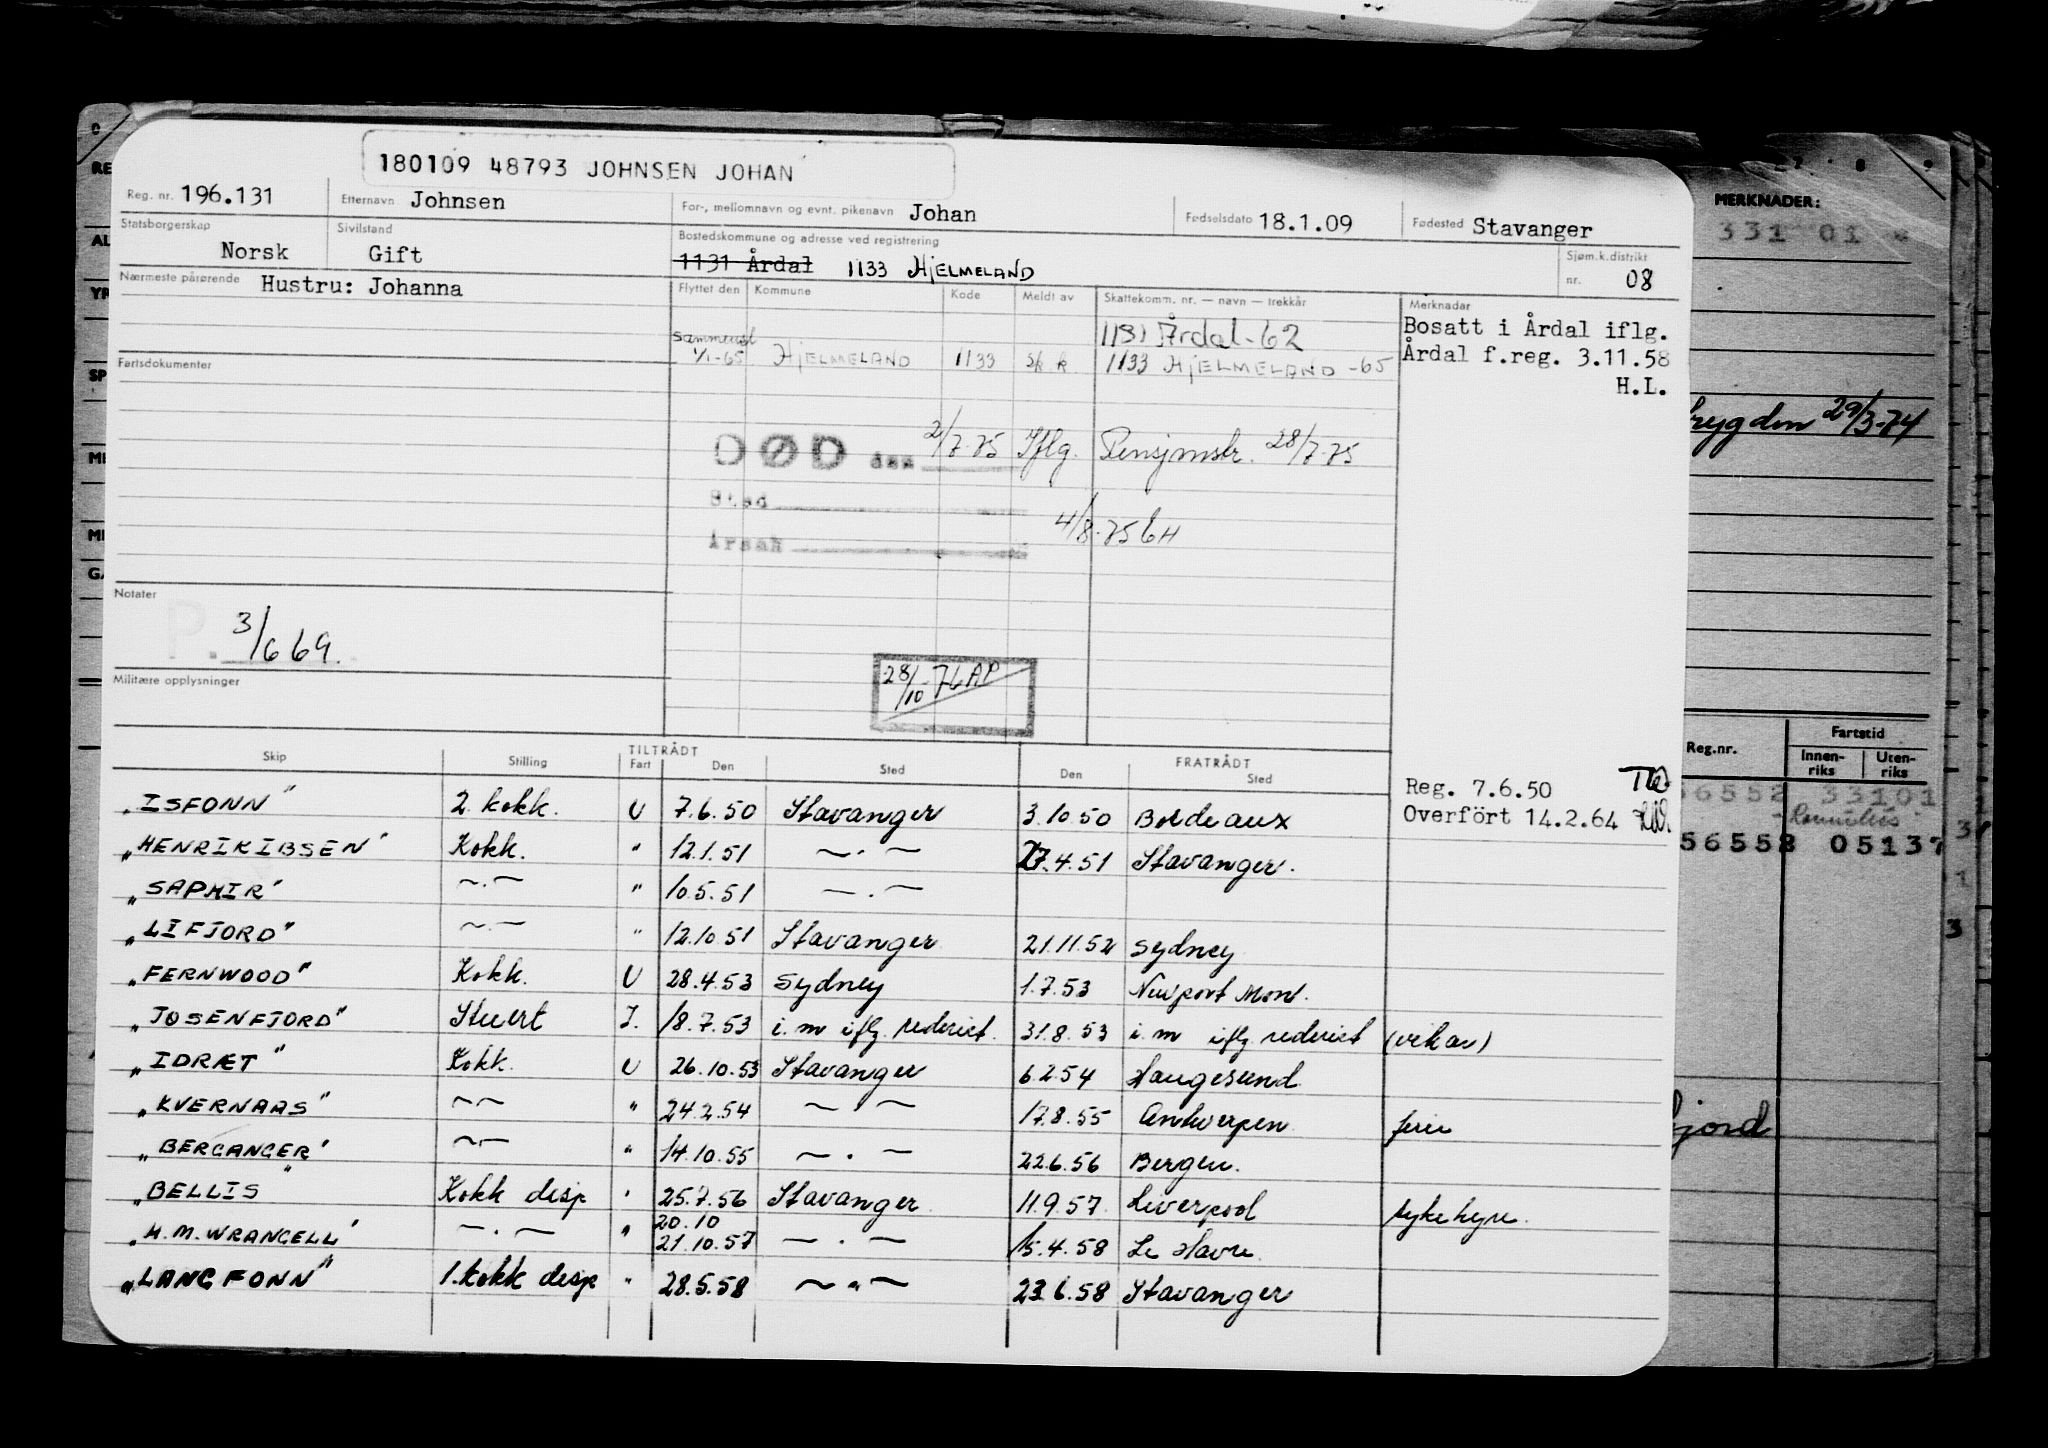 180109 48793 JOHNSEN JOHAN
Reg. nr. 196.131 Etternavn Johnsen For-, mellomnavn og evnt. pikenavn Johan Fødselsdato 18.1.09 Fødested Stavanger
Statsborgerskap Norsk Sivilstand Gift Bostedskommune og adresse ved registrering 1131 Årdal 1133 HJELMELAND Sjøm.k.distrikt nr. 08
Nærmeste pårørende Hustru: Johanna Flyttet den Kommune Kode Meldt av Skattekomm. nr. — navn — trekkår Merknader
1131 Årdal -62 Bosatt i Årdal iflg.
1/1-65 HJELMELAND 1133 1133 HJELMELAND -65 Årdal f.reg. 3.11.58
H.L.
Fartsdokumenter
DØD den 2/7-75 Iflg. Pensjonstr. 28/7-75
Sted
Årsak 4/8-75
Notater
P. 3/6 69.
28/10-76 AP
Militære opplysninger
Skip Stilling TILTRÅDT Fart Den Sted FRATRÅDT Den Sted
Reg. 7.6.50
Overfört 14.2.64
"ISFONN" 2 kokk. U 7.6.50 Stavanger 3.10.50 Bordeaux
"HENRIK IBSEN" Kokk. " 12.1.51 — . — 27.4.51 Stavanger.
"SAPHIR" — . — " 10.5.51 — . —
"LIFJORD" — . — " 12.10.51 Stavanger 21.11.52 Sydney
"FERNWOOD" Kokk. U 28.4.53 Sydney 1.7.53 Newport Mon.
"JØSENFJORD" Stuert I. 18.7.53 i.m iflg. rederiet. 31.8.53 i.m iflg rederiet (vikar)
"IDRÆT" Kokk. U 26.10.53 Stavanger 6.2.54 Haugesund
"KVERNAAS" — — " 24.2.54 — . — 17.8.55 Antwerpen ferie
"BERGANGER" — — " 14.10.55 — . — 22.6.56 Bergen.
"BELLIS" Kokk desp " 25.7.56 Stavanger 11.9.57. Liverpool sykehyre.
"H.M. WRANGELL" — . — " 20.10 21.10.57 — . — 15.4.58 Le Havre.
"LANGFONN" 1.kokk desp " 28.5.58 — " — 23.6.58 Stavanger
MERKNADER:
331 01
29/3-74
Reg.nr. Fartstid
Innenriks Utenriks
56552 33101
56552 05137
fjord